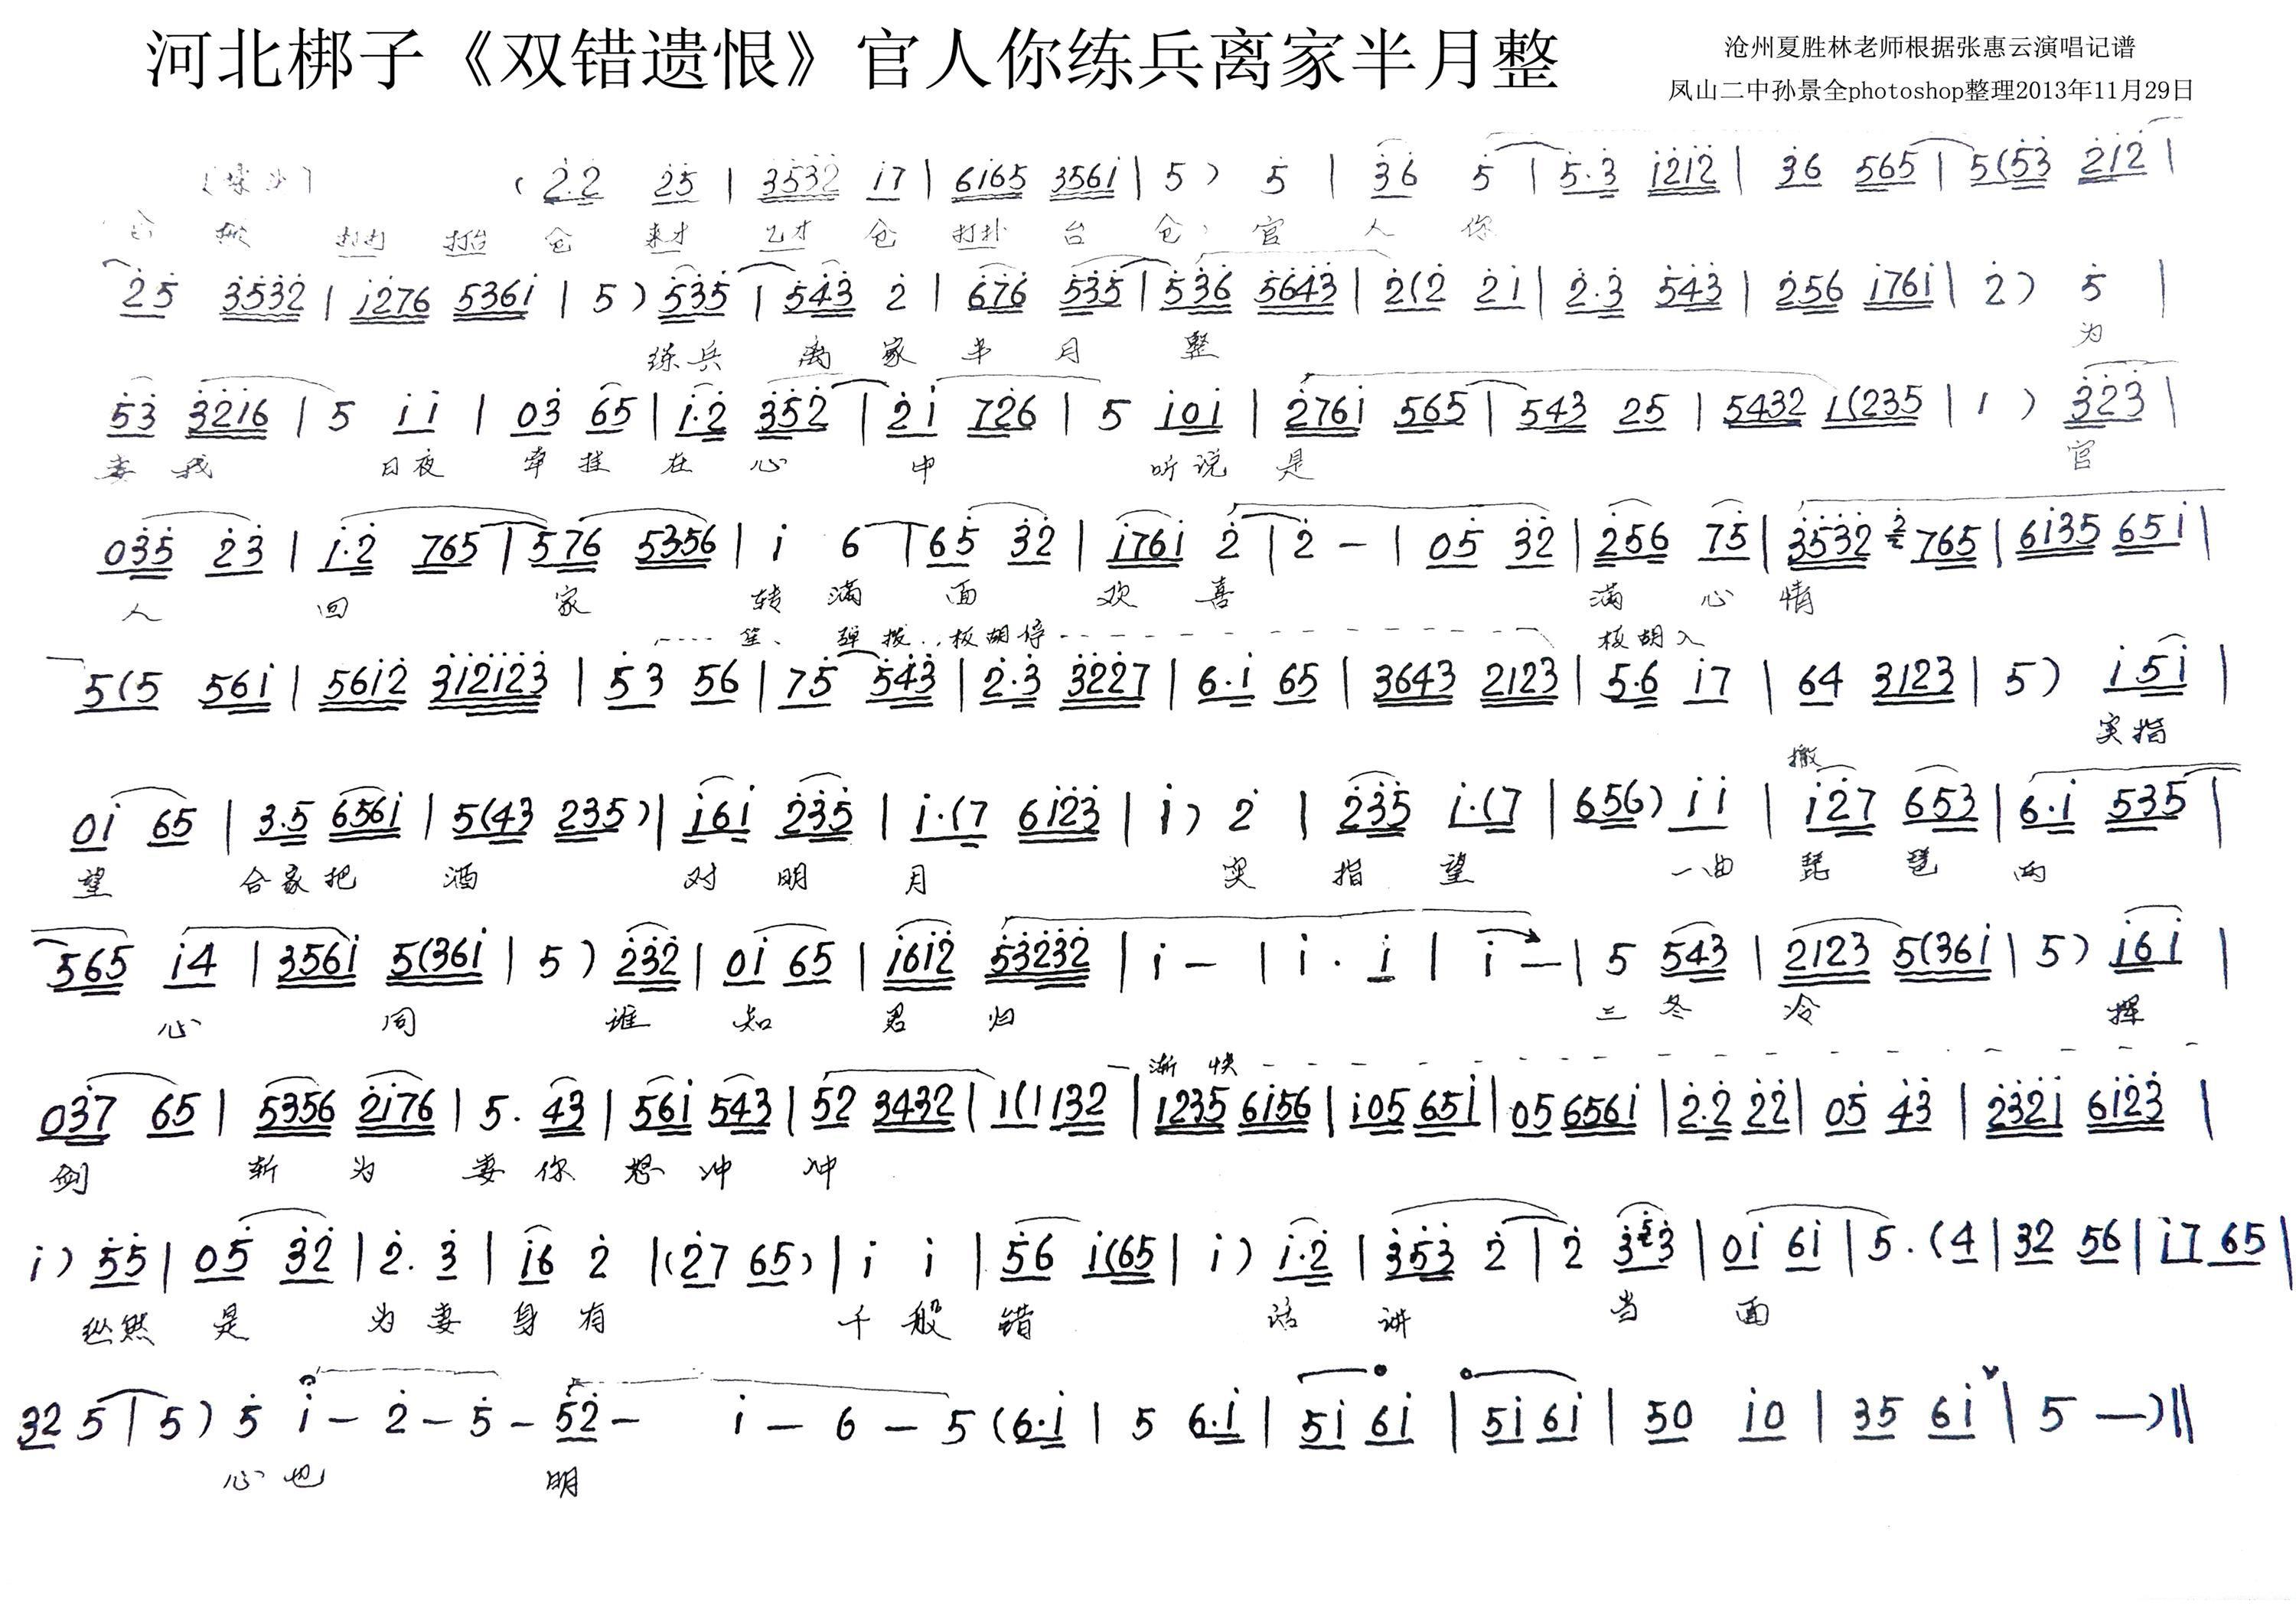 河北梆子《双错遗恨》官人你练兵离家半月整
沧州夏胜林老师根据张惠云演唱记谱
凤山二中孙景全photoshop整理2013年11月29日
(2̇.2̇ 2̇5̇ | 3̇5̇3̇2̇ i7 | 6i65 356i | 5) 5̇ | 3̇6̇ 5̇ | 5̇.3̇ i2̇i2̇ | 3̇6 565 | 5(5̇3̇ 2̇i2̇ |
仓 来才 乙才 仓 打扑 台 仓 官 人 你
2̇5̇ 3̇5̇3̇2̇ | i276 536i | 5) 5̇3̇5̇ | 5̇4̇3̇ 2̇ | 676 5̇3̇5̇ | 5̇3̇6̇ 5̇6̇4̇3̇ | 2̇(2̇ 2̇i | 2̇.3̇ 5̇4̇3̇ | 2̇56 i76i | 2̇) 5̇ |
练兵 离 家 半 月 整 为
5̇3̇ 3̇2̇i6 | 5 i i | 03̇ 65 | i.2̇ 3̇5̇2̇ | 2̇i 72̇6 | 5 i0i | 2̇76i 565 | 543 25 | 5432 1(235 | 1) 3̇2̇3̇ |
妻 我 日夜 牵 挂 在 心 中 听说 是 官
03̇5̇ 2̇3̇ | i.2̇ 765 | 576 5356 | i 6 | 65̇ 3̇2̇ | i76i 2̇ | 2̇ — | 05̇ 3̇2̇ | 2̇56 75̇ | 3̇5̇3̇2̇ 765 | 6i35 65i |
人 回 家 转 满 面 欢 喜 满 心 情
笙、弹拨 板胡停 板胡入
5(5 56i | 56i2̇ 3̇i2̇i2̇3̇ | 5̇3 56 | 75̇ 5̇4̇3̇ | 2̇.3̇ 3̇2̇2̇7 | 6.i 65 | 3643 2123 | 5.6 i7 | 64 3123 | 5) i5i |
实指
撤
0i 65 | 3.5 656i | 5(43 235) | i6i 2̇3̇5̇ | i.(7 6i2̇3̇ | i) 2̇ | 2̇3̇5̇ i.(7 | 656) i i | i2̇7 653 | 6.i 535 |
望 合家把 酒 对 明 月 实 指 望 一曲 琵 琶 两
565 i4 | 356i 5(36i | 5) 2̇3̇2̇ | 0i 65 | i6i2̇ 5̇3̇2̇3̇2̇ | i — | i . i | i — | 5 543 | 2123 5(36i | 5) i6i |
心 同 谁 知 君 归 三 冬 冷 挥
渐 快
03̇7 65 | 5356 2̇i76 | 5. 43 | 56i 543 | 52 3432 | 1(1 132 | 1235 6i56 | i05 65i | 05 656i | 2̇.2̇ 2̇2̇ | 05̇ 4̇3̇ | 2̇3̇2̇i 6i2̇3̇ |
剑 斩 为 妻 你 怒 冲 冲
i) 5̇5̇ | 05̇ 3̇2̇ | 2̇. 3̇ | i6 2̇ | (2̇7 65) | i i | 5̇6 i(65 | i) i.2̇ | 3̇5̇3̇ 2̇ | 2̇ 3̇3̇ | 0i 6i | 5. (4 | 32 56 | i7 65 |
纵然 是 为 妻 身 有 千 般 错 话 讲 当 面
32 5 | 5) 5̇ i — 2̇ — 5̇ — 5̇2̇ — i — 6 — 5 (6.i | 5 6.i | 5i 6i | 5i 6i | 50 i0 | 35 6i | 5 —)‖
心 也 明